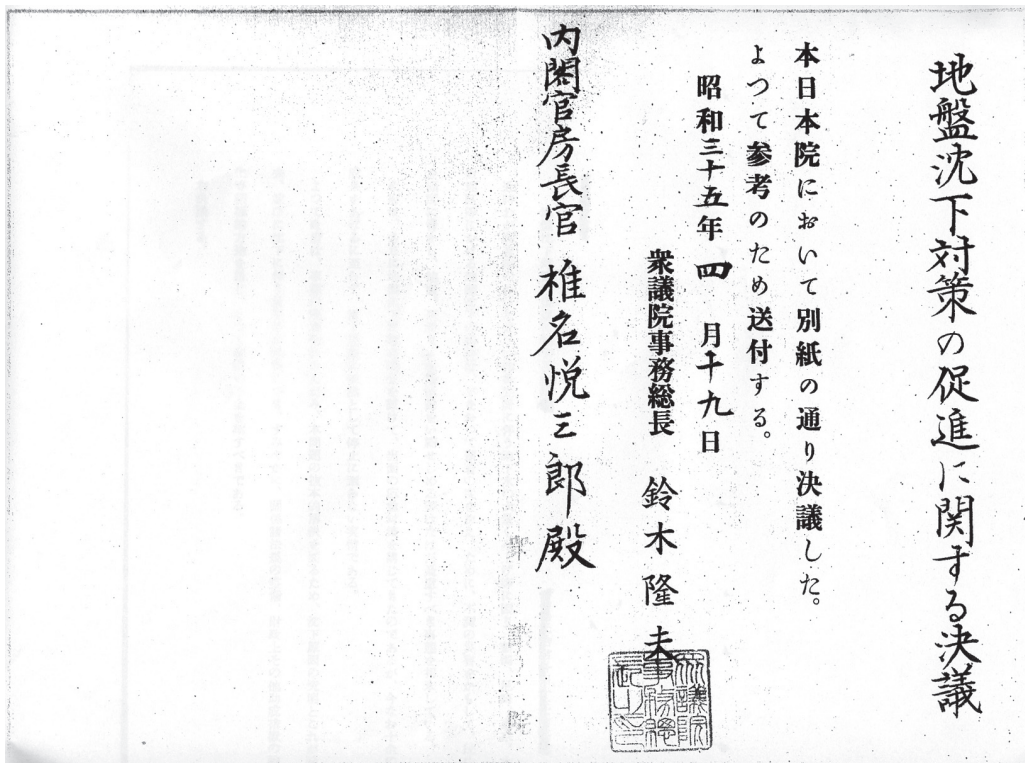 地盤沈下対策の促進に関する決議
本日本院において別紙の通り決議した。
よつて参考のため送付する。
昭和三十五年四月十九日
衆議院事務総長 鈴木隆夫
衆議院事務総長之印
内閣官房長官 椎名悦三郎殿
衆議院